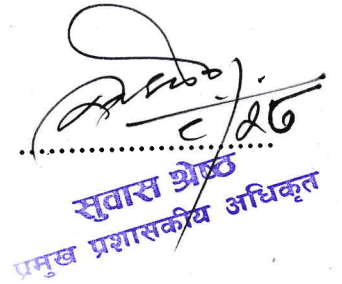 ८/२८
सुवास श्रेष्ठ
प्रमुख प्रशासकीय अधिकृत